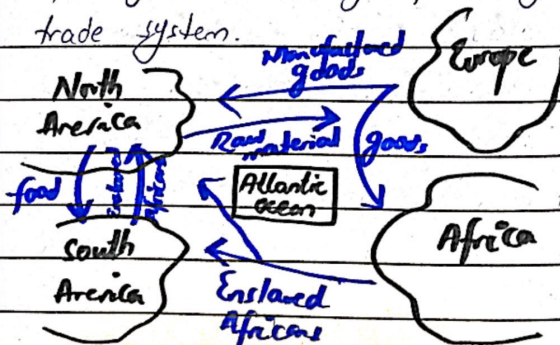 trade system.
Manufactured
goods
Europe
North
America
Raw
material
goods
food
Enslaved
Africans
Atlantic
ocean
Africa
South
America
Enslaved
Africans